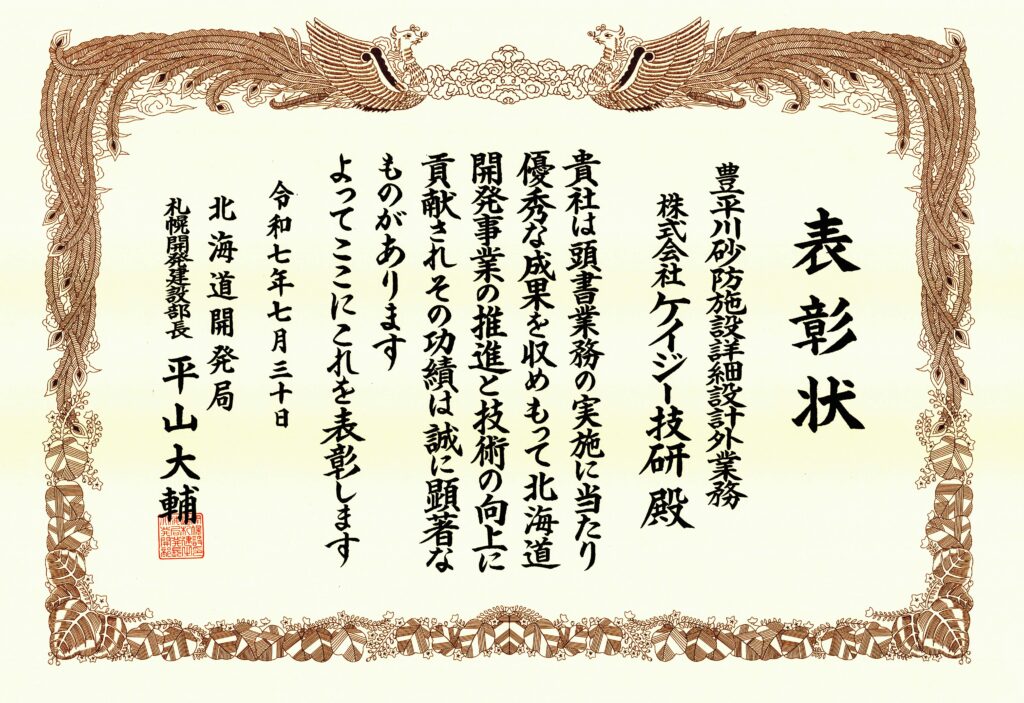 表彰状
豊平川砂防施設詳細設計外業務
株式会社ケイジー技研 殿
貴社は頭書業務の実施に当たり
優秀な成果を収めもって北海道
開発事業の推進と技術の向上に
貢献されその功績は誠に顕著な
ものがあります
よってここにこれを表彰します
令和七年七月三十日
北海道開発局
札幌開発建設部長 平山大輔